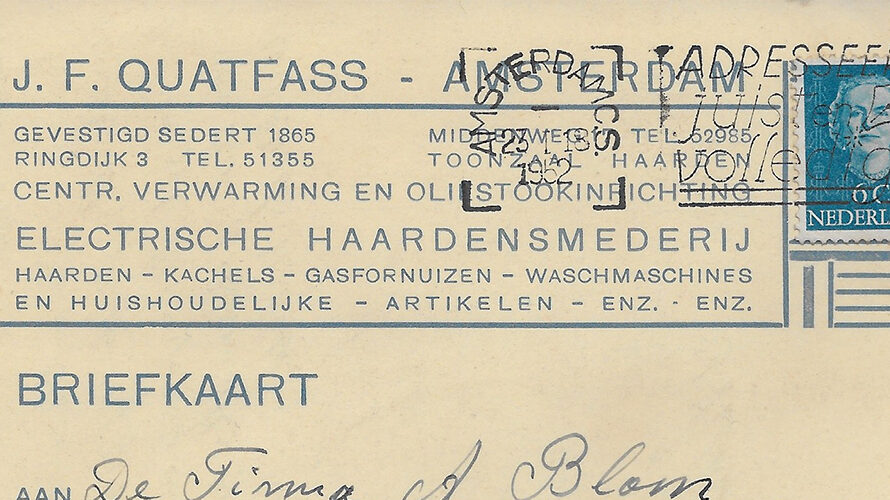 J. F. QUATFASS - AMSTERDAM
GEVESTIGD SEDERT 1865
RINGDIJK 3 TEL. 51355
TEL. 52985
TOONZAAL HAARDEN
CENTR. VERWARMING EN OLIESTOOKINRICHTING
ELECTRISCHE HAARDENSMEDERIJ
HAARDEN - KACHELS - GASFORNUIZEN - WASCHMASCHINES
EN HUISHOUDELIJKE - ARTIKELEN - ENZ. - ENZ.
AMSTERDAM C.S.
23 I 18
1952
ADRESSEER
juist en
volledig
NEDERL
BRIEFKAART
AAN De Firma A Blom